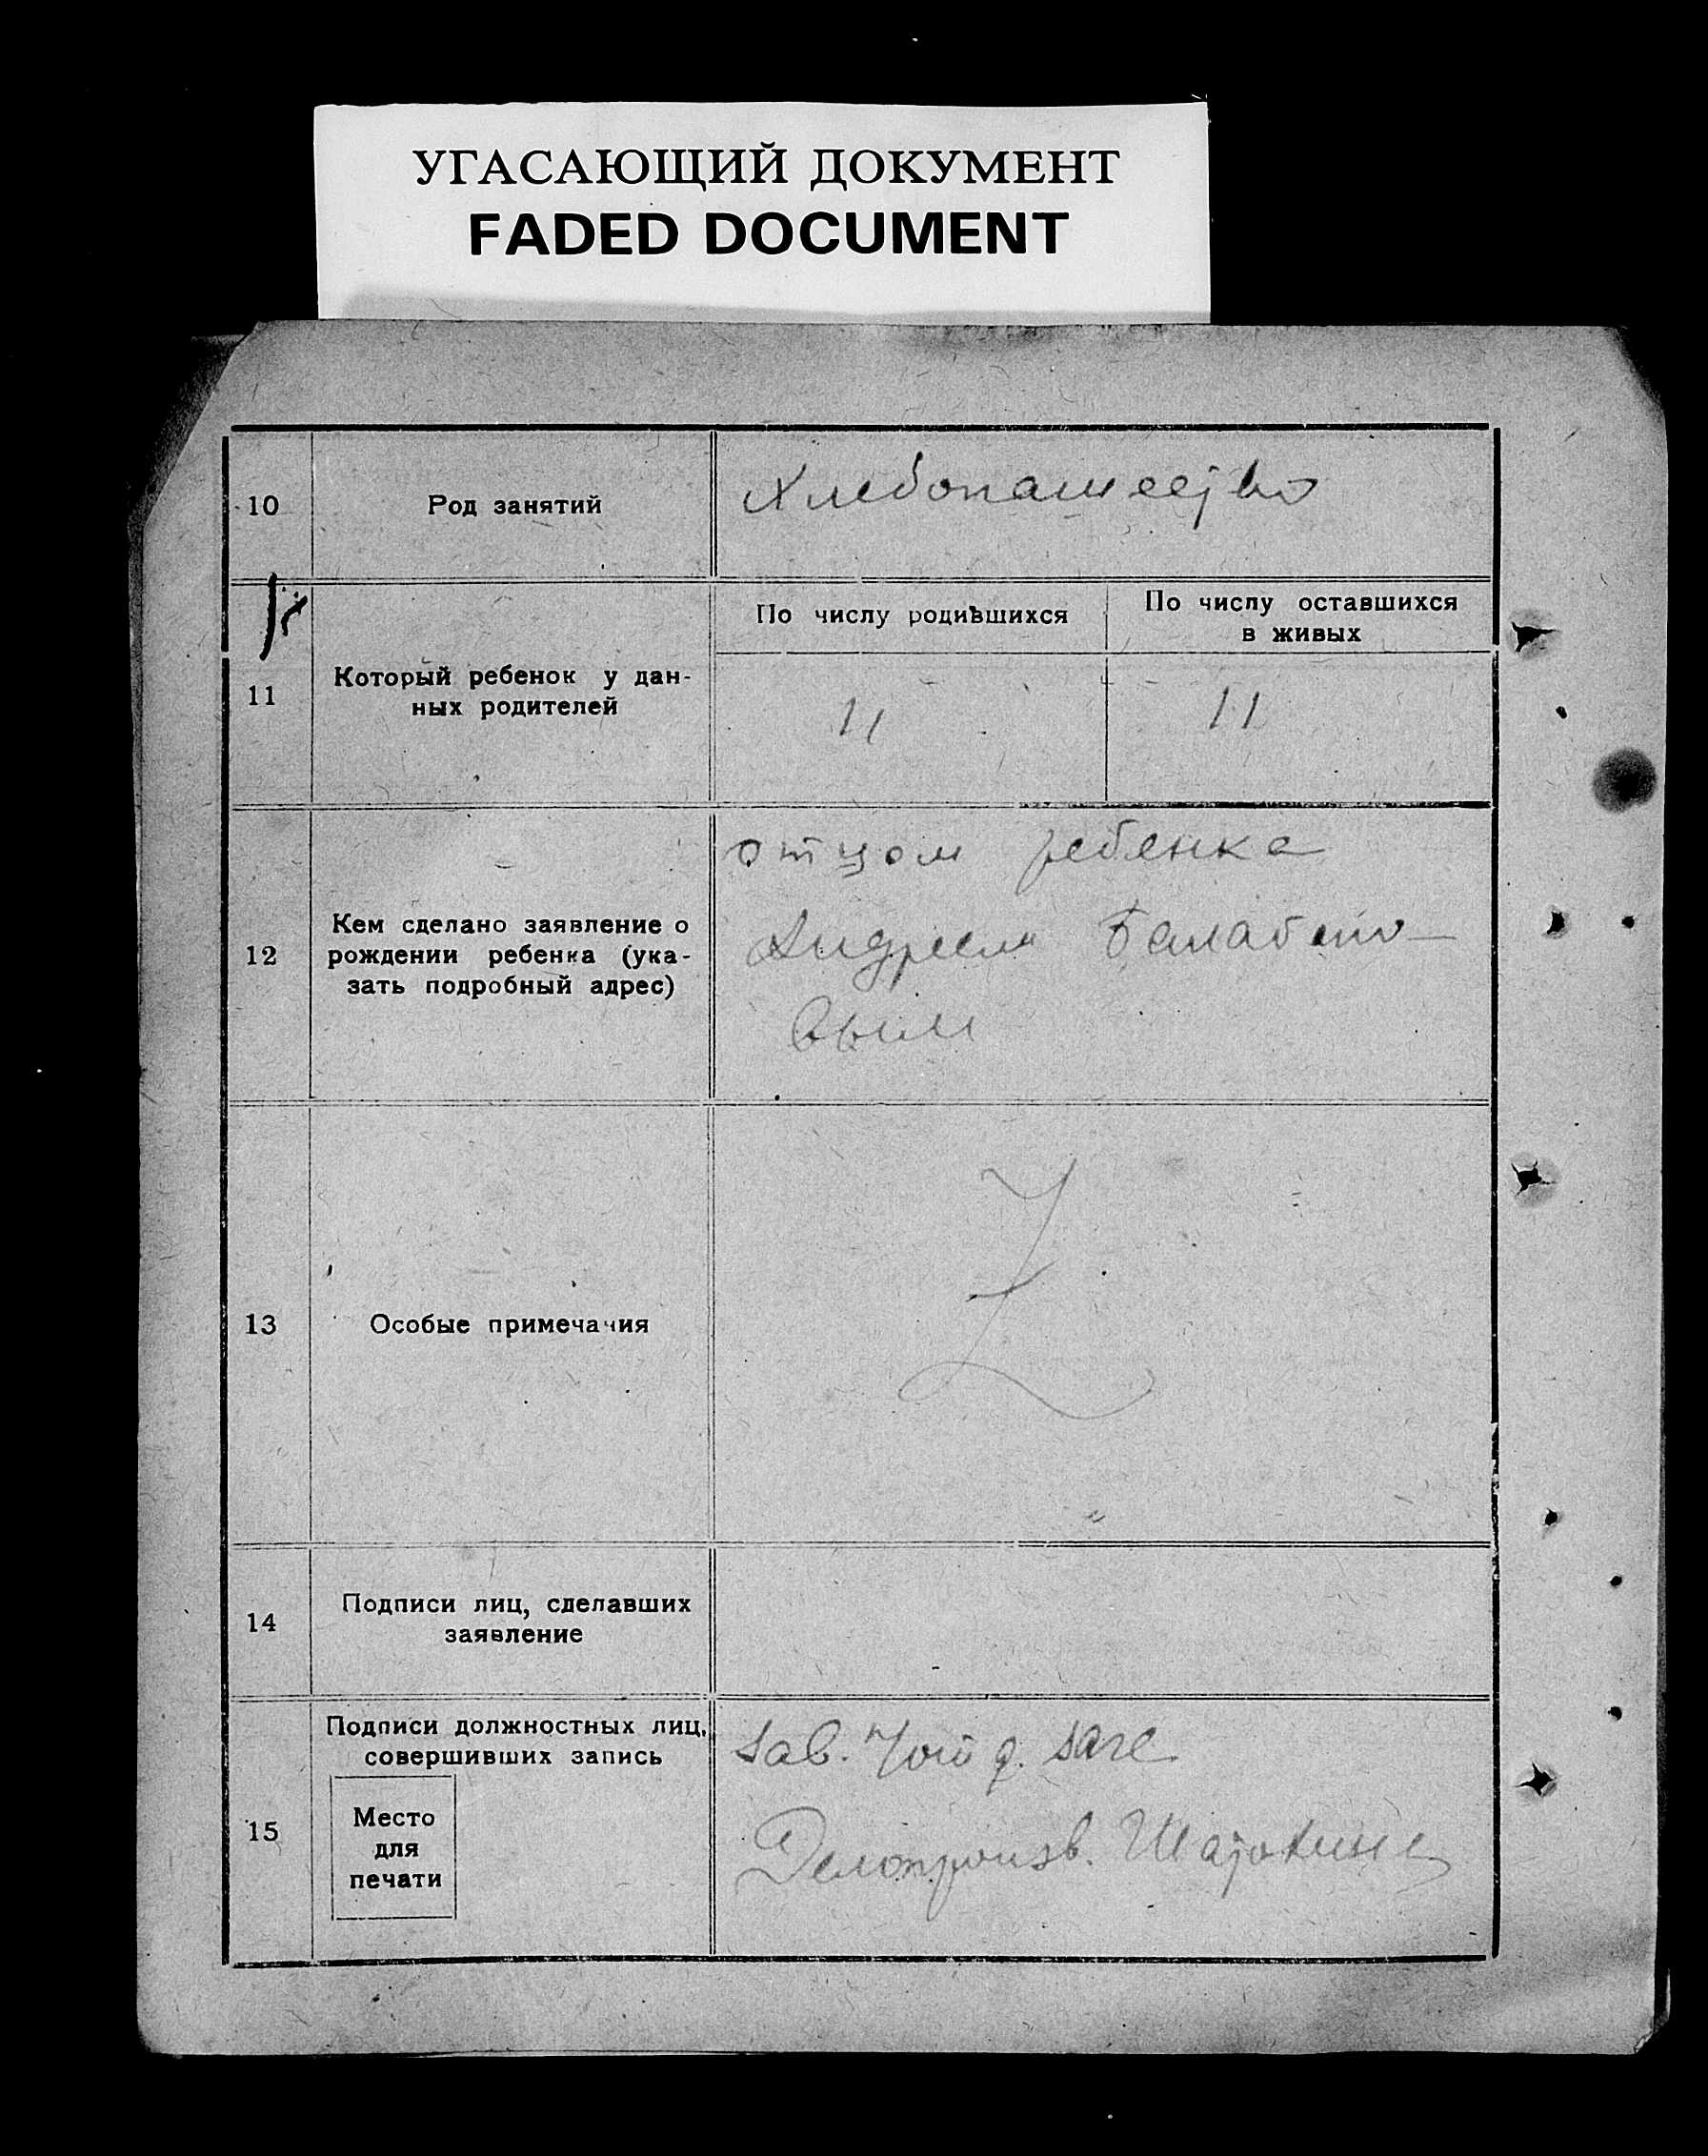 УГАСАЮЩИЙ ДОКУМЕНТ
FADED DOCUMENT
10
Род занятий
Хлебопашество
11
Который ребенок у дан-
ных родителей
По числу родившихся
По числу оставшихся
в живых
11
11
12
Кем сделано заявление о
рождении ребенка (ука-
зать подробный адрес)
отцом ребенка
Андреем
вым
13
Особые примечания
14
Подписи лиц, сделавших
заявление
15
Подписи должностных лиц,
совершивших запись
Место
для
печати
Зав.
Делопроизв.